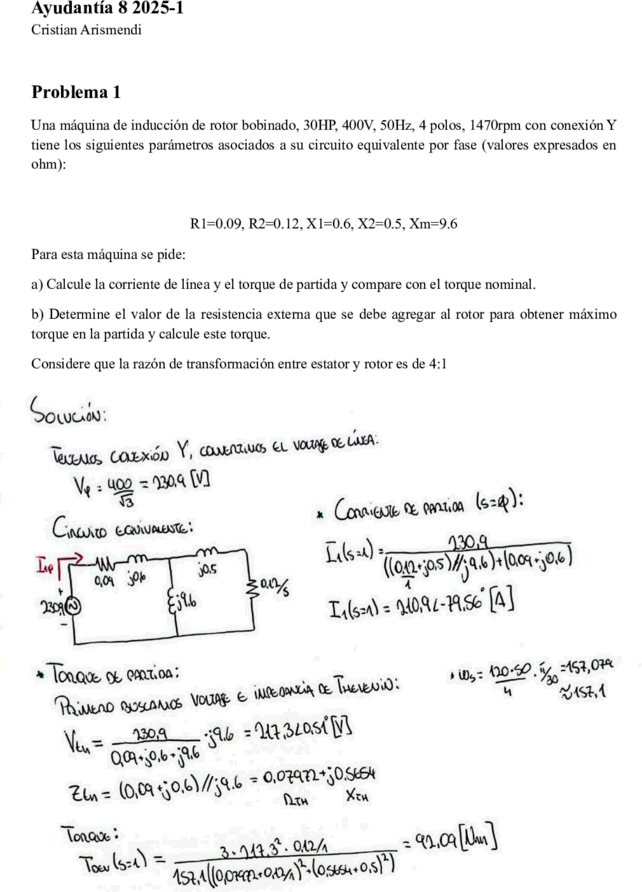 Ayudantía 8 2025-1
Cristian Arismendi
Problema 1
Una máquina de inducción de rotor bobinado, 30HP, 400V, 50Hz, 4 polos, 1470rpm con conexión Y
tiene los siguientes parámetros asociados a su circuito equivalente por fase (valores expresados en
ohm):
R1=0.09, R2=0.12, X1=0.6, X2=0.5, Xm=9.6
Para esta máquina se pide:
a) Calcule la corriente de línea y el torque de partida y compare con el torque nominal.
b) Determine el valor de la resistencia externa que se debe agregar al rotor para obtener máximo
torque en la partida y calcule este torque.
Considere que la razón de transformación entre estator y rotor es de 4:1
Solución:
Tenemos conexión Y, convertimos el voltaje de línea.
Vφ = 400/√3 = 230,9 [V]
Circuito equivalente:
I1φ
0,09 j0,6 j0,5
230,9 + - j9.6 0.12/s
* Corriente de partida (s=1):
I1(s=1) = 230,9 / (((0,12/1 + j0,5)//j9,6)+(0,09+j0,6))
I1(s=1) = 210,9∠-79,56° [A]
* Torque de partida:
• ωs = 120·50/4 · π/30 = 157,079
≈ 157,1
Primero buscamos voltaje e impedancia de Thevenin:
Vth = 230,9/(0,09+j0,6+j9,6) · j9.6 = 217,3∠0,51° [V]
Zth = (0,09+j0,6)//j9.6 = 0,07972+j0,5654
RTH XTH
Torque:
Tdev(s=1) = 3·217,3²·0,12/1 / (157,1((0,07972+0,12/1)²+(0,5654+0,5)²)) = 92,09 [Nm]